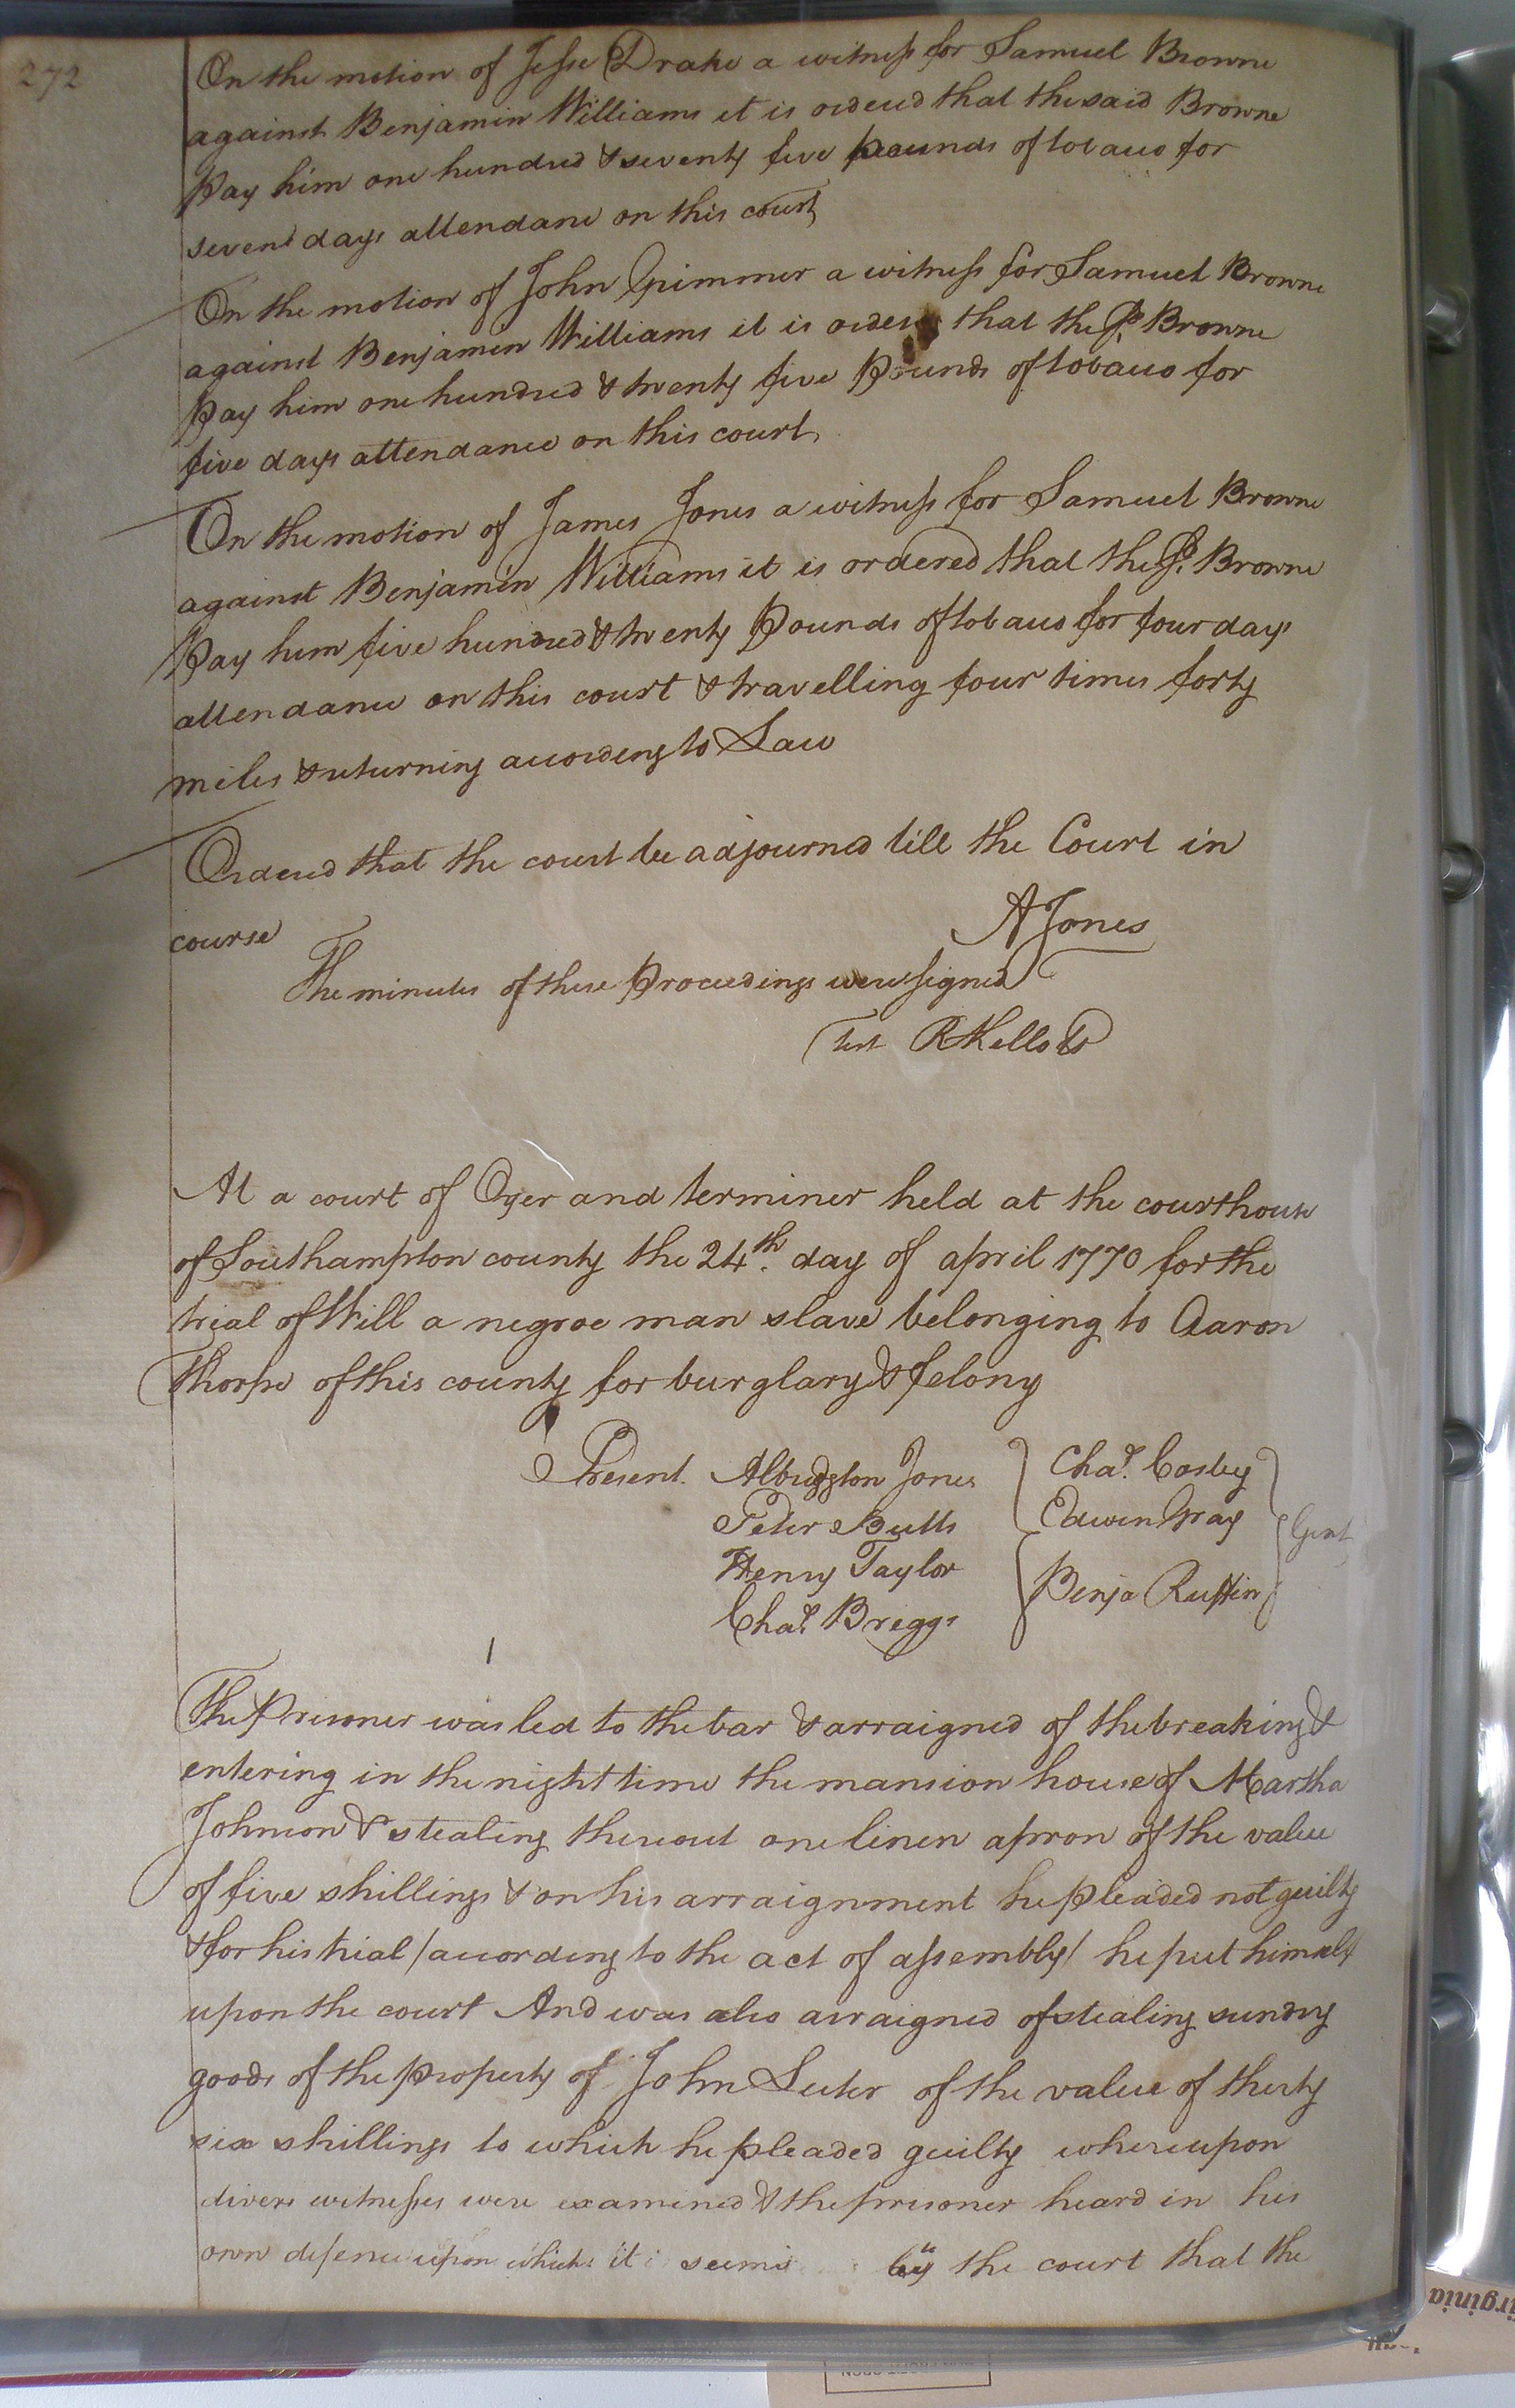 272
On the motion of Jesse Drake a witness for Samuel Browne
against Benjamin Williams it is ordered that the said Browne
Pay him one hundred & seventy five pounds of tobacco for
seven days attendance on this court
On the motion of John Grimmer a witness for Samuel Browne
against Benjamin Williams it is ordered that the sd. Browne
Pay him one hundred & twenty five Pounds of tobacco for
five days attendance on this court
On the motion of James Jones a witness for Samuel Browne
against Benjamin Williams it is ordered that the sd. Browne
Pay him five hundred & twenty Pounds of tobacco for four days
attendance on this court & travelling four times forty
miles & returning according to Law
Ordered that the court be adjourned till the Court in
course
A Jones
The minutes of these Proceedings were signed
Test R Kello
At a court of Oyer and terminer held at the courthouse
of Southampton county the 24th. day of april 1770 for the
trial of Will a negroe man slave belonging to Aaron
Thorpe of this county for burglary & felony
Present. Albridgton Jones Chas. Cosby
Peter Butts Edwin Gray Gent
Henry Taylor Benja Ruffin
Chas. Briggs
The Prisoner was led to the bar & arraigned of the breaking &
entering in the night time the mansion house of Martha
Johnson & stealing thereout one linen apron of the value
of five shillings & on his arraignment he pleaded not guilty
& for his trial /according to the act of assembly/ he put himself
upon the court And was also arraigned of stealing sundry
goods of the property of John Suter of the value of thirty
six shillings to which he pleaded guilty whereupon
divers witnesses were examined & the prisoner heard in his
own defence upon which it seems by the court that the